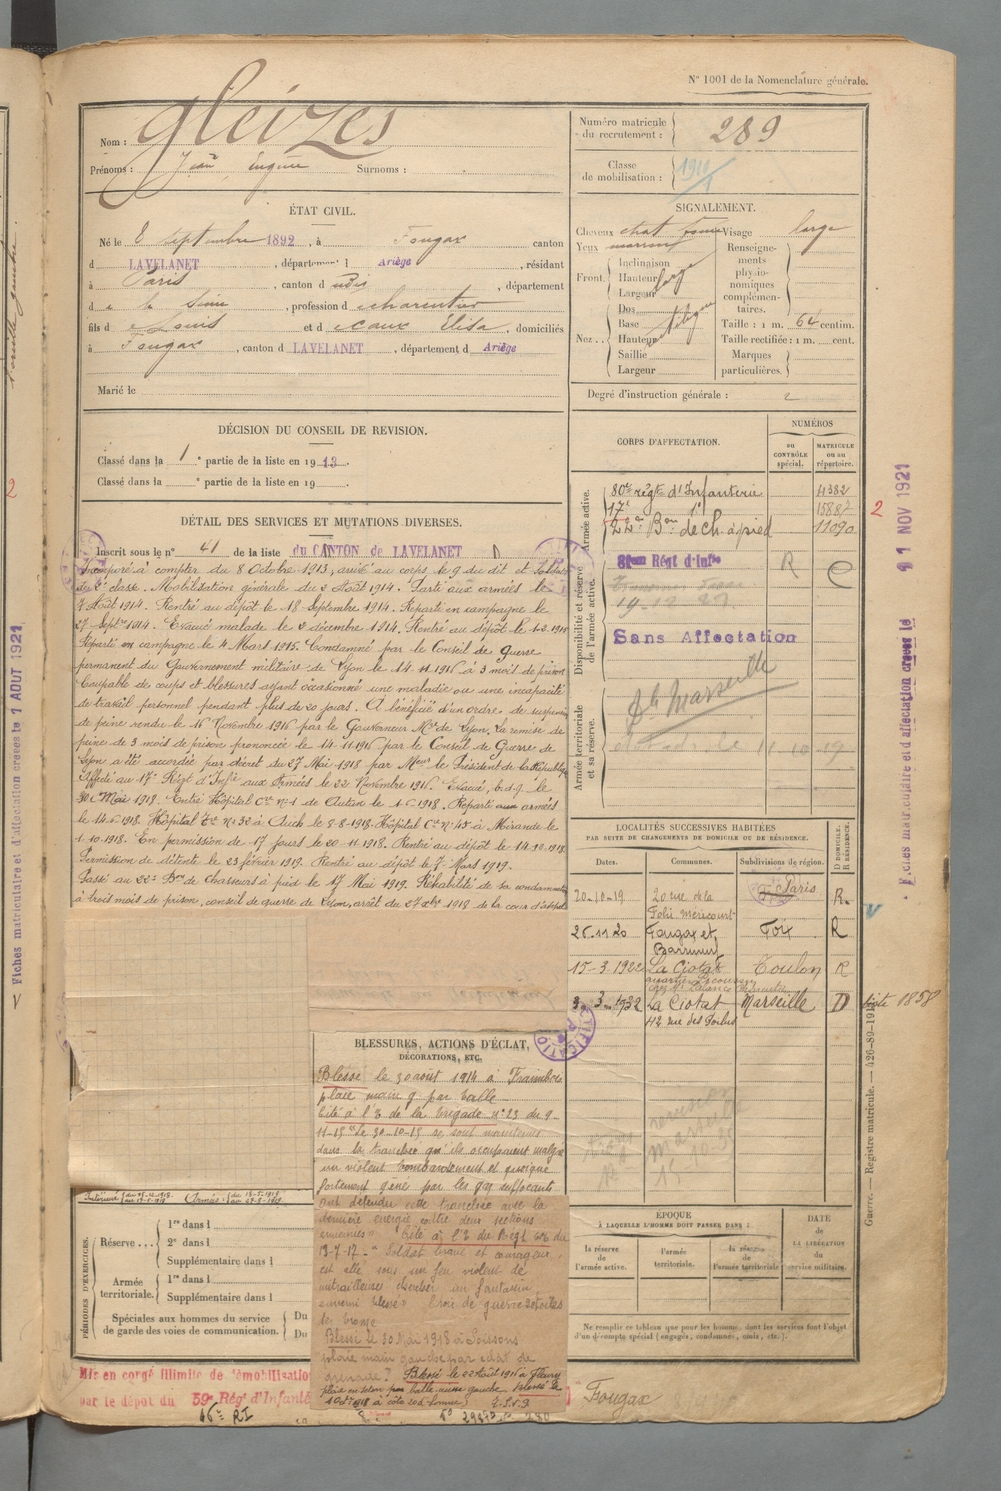 N° 1001 de la Nomenclature générale.
Nom : Gleizes
Prénoms : Jean Eugène Surnoms :
Numéro matricule du recrutement : 289
Classe de mobilisation : 1911
ÉTAT CIVIL.
Né le 8 septembre 1892, à Fougax canton
d LAVELANET, département d Ariège, résidant
à Paris, canton d udis, département
d e la Seine, profession d e charentier
fils d e Louis et d e caux Elisa, domiciliés
à Fougax, canton d LAVELANET, département d Ariège
Marié le
SIGNALEMENT.
Cheveux chat foncé Visage large
Yeux marrons
Front. Inclinaison
Hauteur large
Largeur
Nez .. Dos
Base
Hauteur
Saillie
Largeur
Renseignements physionomiques complémentaires.
Taille : 1 m. 64 centim.
Taille rectifiée : 1 m. cent.
Marques particulières.
Degré d'instruction générale : 2
DÉCISION DU CONSEIL DE REVISION.
Classé dans la 1e partie de la liste en 1913.
Classé dans la e partie de la liste en 19 .
DÉTAIL DES SERVICES ET MUTATIONS DIVERSES.
Inscrit sous le n° 41 de la liste du CANTON de LAVELANET
Incorporé à compter du 8 Octobre 1913, arrivé au corps, le 9 du dit et Soldat
de 2e classe. Mobilisation générale du 2 Août 1914. Parti aux armées le
7 Août 1914. Rentré au dépôt le 18 Septembre 1914. Reparti en campagne le
27 Septbre 1914. Evacué malade le 2 décembre 1914. Rentré au dépôt le 1-2 1915
Reparti en campagne le 4 Mars 1915. Condamné par le Conseil de Guerre
permanent du Gouvernement militaire de Lyon le 14.11.1916 à 3 mois de prison
Coupable de coups et blessures ayant occasionné une maladie ou une incapacité
de travail personnel pendant plus de 20 jours. A bénéficié d'un ordre de suspension
de peine rendu le 16 Novembre 1916 par le Gouverneur Mre de Lyon. La remise de
peine de 3 mois de prison prononcée le 14-11-1916 par le Conseil de Guerre de
Lyon a été accordée par décret du 27 Mai 1918 par Mr le Président de la République
Affecté au 17e Régt d'Infie aux Armées le 22 Novembre 1916. Evacué, b.d.g. le
30 Mai 1918. Entré Hôpital Cre n°1 de Autun le 1-6-1918. Reparti aux armées
le 14-6-1918. Hôpital Cre n° 32 à Auch le 8-8-1918. Hôpital Cre n°45 à Mirande le
1-10-1918. En permission de 17 jours le 20-11-1918. Rentré au dépôt le 14-12-1918.
Permission de détente le 23 février 1919. Rentré au dépôt le 7 Mars 1919.
Passé au 22e Bon de chasseurs à pied le 17 Mai 1919. Réhabilité de sa condamnation
à trois mois de prison, conseil de guerre de Lyon, arrêt du 27 xbre 1918 de la cour d'appel
BLESSURES, ACTIONS D'ÉCLAT, DÉCORATIONS, ETC.
Blessé le 30 août 1914 à Fraimbois
plaie main g par balle
Cité à l'O de la brigade n° 23 du 9-
11-15 "Le 30-10-15 se sont maintenus
dans la tranchée qu'ils occupaient malgré
un violent bombardement et quoique
fortement gêné par les gaz suffocants
ont défendu cette tranchée avec la
dernière énergie contre deux sections
ennemies" Cité à l'O du Régt du
13-7-17 - "Soldat brave et courageux,
est allé sous un feu violent de
mitrailleuses chercher un fantassin
ennemi blessé" Croix de guerre 2 étoiles
de bronze
Blessé le 30 Mai 1918 à Soissons
plaie main gauche par éclat de
grenade. Blessé le 22 août 1916 à Fleury
Blessé le
CORPS D'AFFECTATION.
NUMÉROS
au CONTRÔLE spécial.
MATRICULE ou au répertoire.
Armée active.
80e régt d'Infanterie 4382
17e 15887
22e Bon de ch. à pied 11090
Disponibilité et réserve de l'armée active.
Régt d'Infie R
Sans Affectation
Armée territoriale et sa réserve.
Marseille
LOCALITÉS SUCCESSIVES HABITÉES
PAR SUITE DE CHANGEMENTS DE DOMICILE OU DE RÉSIDENCE.
Dates. Communes. Subdivisions de région. D DOMICILE. R RÉSIDENCE.
20-10-19 20 rue de la Folie Méricourt Paris R.
26.11.20 Fougax et Barrineuf Foix R
15-3.1922 La Ciotat Toulon R
3-3-1932 La Ciotat Marseille D
ÉPOQUE
À LAQUELLE L'HOMME DOIT PASSER DANS :
la réserve de l'armée active.
l'armée territoriale.
la réserve de l'armée territoriale
DATE de LA LIBÉRATION du service militaire.
Ne remplir ce tableau que pour les hommes dont les services font l'objet
d'un décompte spécial (engagés, condamnés, omis, etc.).
PÉRIODES D'EXERCICES.
Réserve ... 1re dans l
2e dans l
Supplémentaire dans l
Armée territoriale. 1re dans l
Supplémentaire dans l
Spéciales aux hommes du service de garde des voies de communication. Du
Du
Mis en congé illimité de démobilisation
par le dépôt du 59e Rég d'Infanterie
Fougax
Fiches matriculaire et d'affectation créées le 1 AOUT 1921
Fiches matriculaire et d'affectation créées le 1 NOV 1921
Guerre. — Registre matricule. — 426-89-191